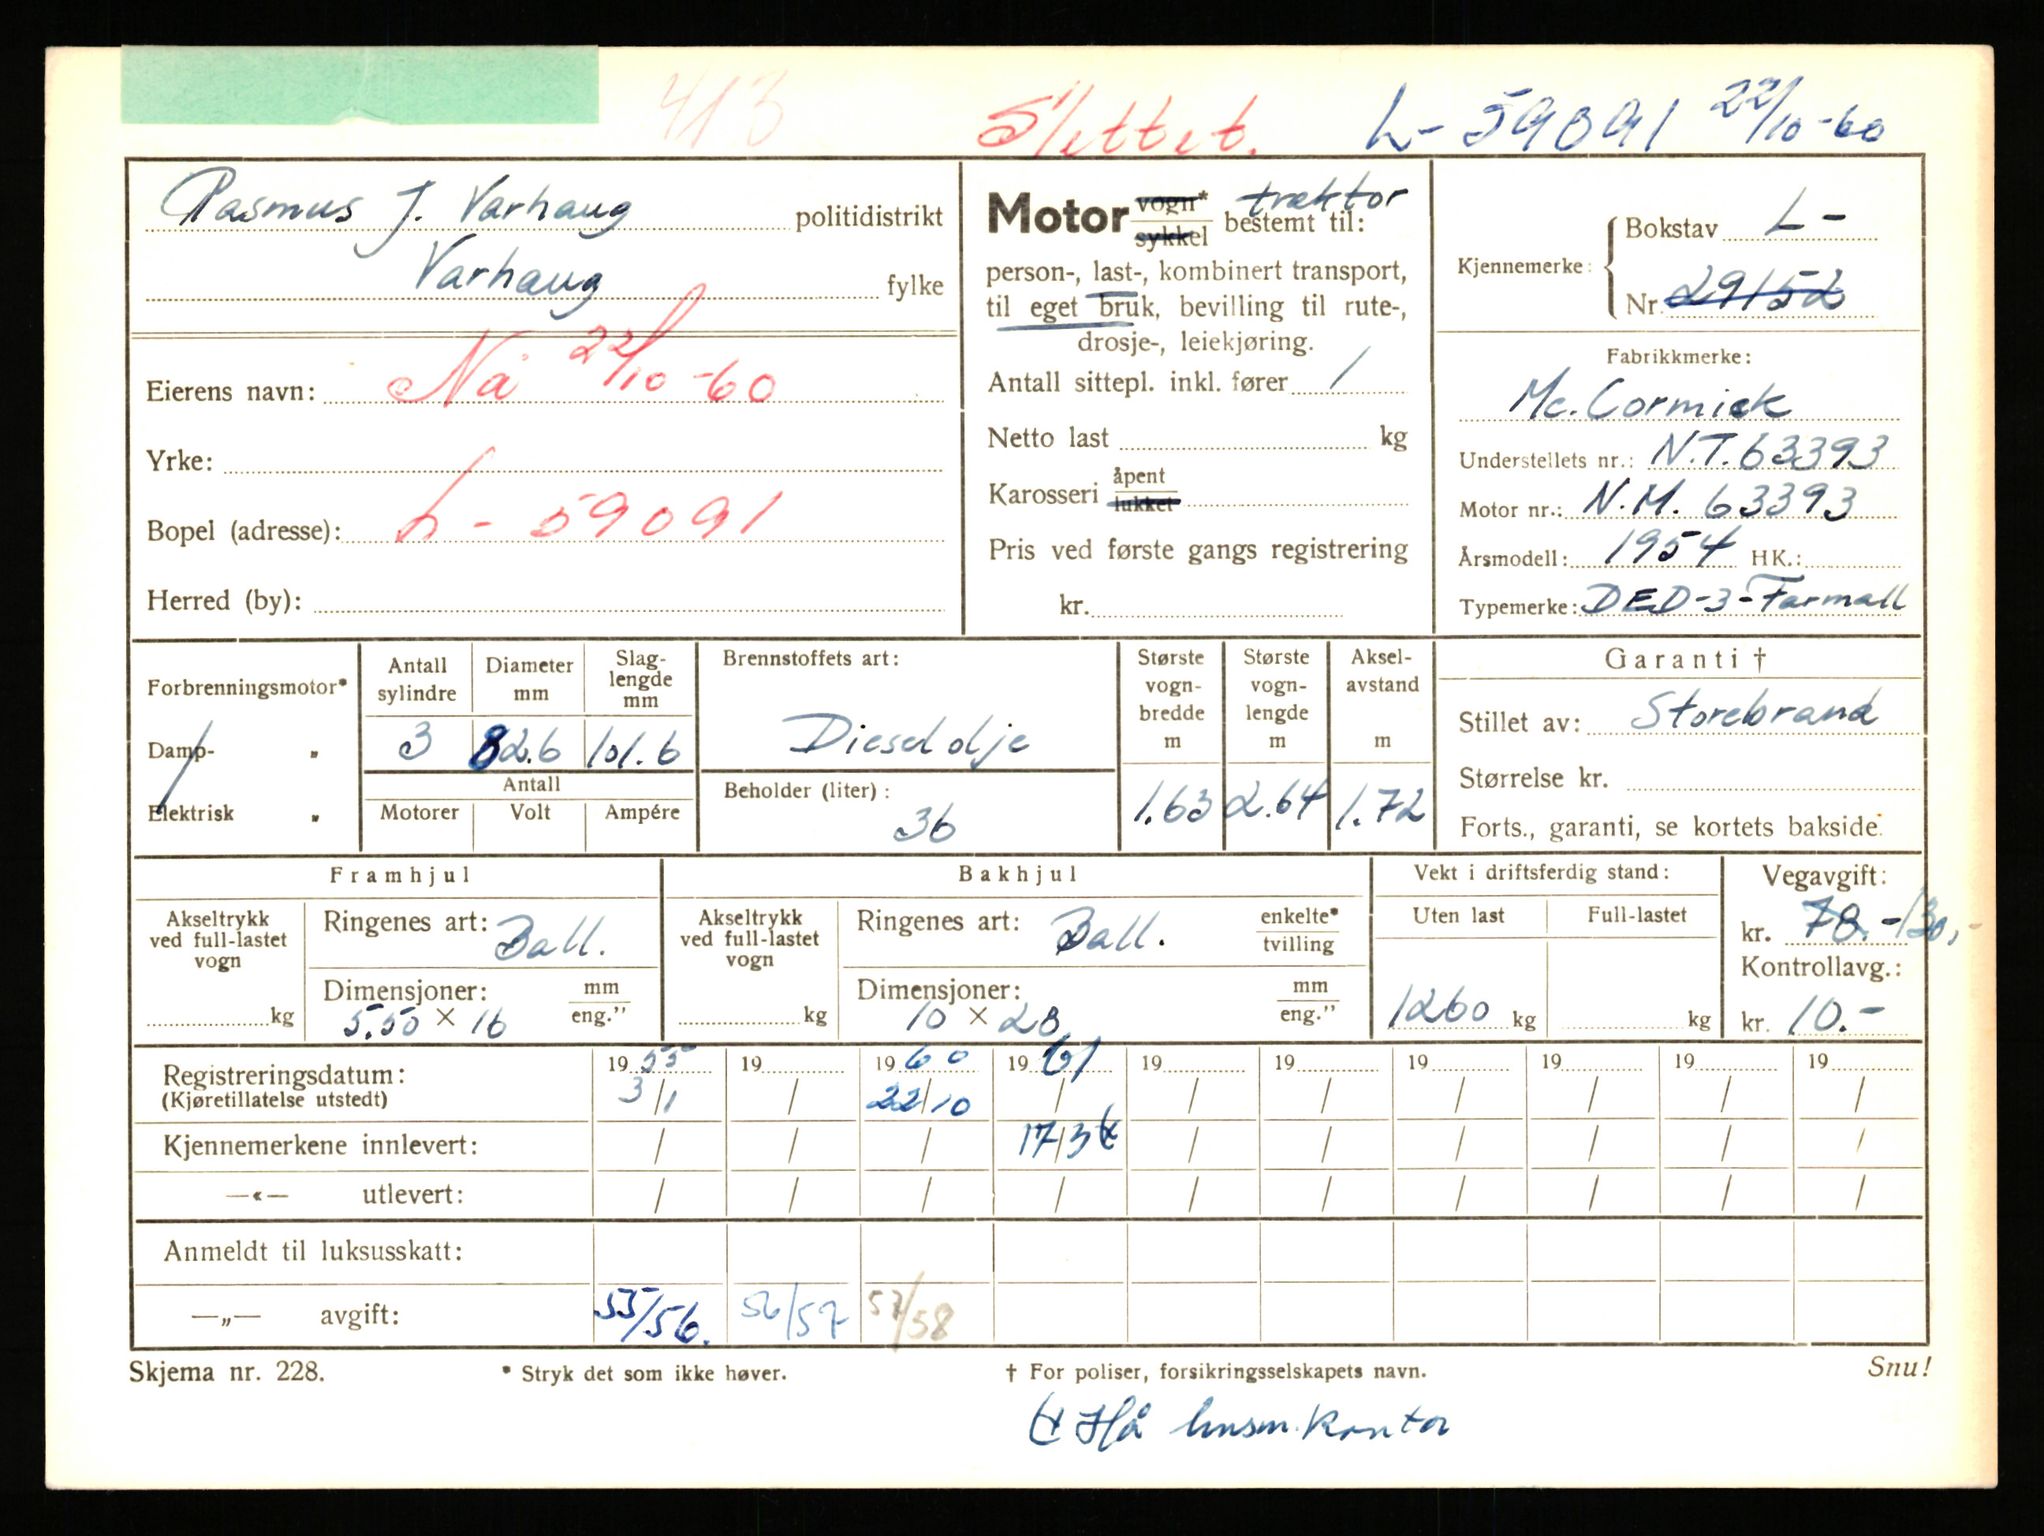 413 Slettet. L- 59091 22/10-60
Rasmus J. Varhaug politidistrikt
Varhaug fylke
Eierens navn: Nå 22/10-60
Yrke:
Bopel (adresse): L- 59091
Herred (by):
Motor vogn* sykkel traktor bestemt til:
person-, last-, kombinert transport,
til eget bruk, bevilling til rute-,
drosje-, leiekjøring.
Antall sittepl. inkl. fører 1
Netto last kg
Karosseri åpent lukket
Pris ved første gangs registrering
kr.
Kjennemerke: Bokstav L-
Nr. 29152
Fabrikkmerke:
Mc. Cormick
Understellets nr.: N.T. 63393
Motor nr.: N.M. 63393
Årsmodell: 1954 HK.:
Typemerke: DED-3-Farmall
Forbrenningsmotor*
Damp- "
Elektrisk "
Antall sylindre Diameter mm Slag-lengde mm
3 82.6 101.6
Antall
Motorer Volt Ampére
Brennstoffets art:
Dieselolje
Beholder (liter):
36
Største vogn-bredde m Største vogn-lengde m Aksel-avstand m
1.63 2.64 1.72
Garanti †
Stillet av: Storebrand
Størrelse kr.
Forts., garanti, se kortets bakside.
Framhjul
Akseltrykk ved full-lastet vogn
kg
Ringenes art: Ball.
Dimensjoner: mm eng."
5.50 × 16
Bakhjul
Akseltrykk ved full-lastet vogn
kg
Ringenes art: Ball. enkelte* tvilling
Dimensjoner: mm eng."
10 × 28
Vekt i driftsferdig stand:
Uten last Full-lastet
1260 kg kg
Vegavgift:
kr. 78.- 130,-
Kontrollavg.:
kr. 10.-
Registreringsdatum: 1955 19 1960 1961 19 19 19 19 19 19
(Kjøretillatelse utstedt) 3/1 / 22/10 / / / / / / /
Kjennemerkene innlevert: / / / 17/3 / / / / / /
—«— utlevert: / / / / / / / / / /
Anmeldt til luksusskatt:
—„— avgift: 55/56. 56/57 57/58
Skjema nr. 228. * Stryk det som ikke høver. † For poliser, forsikringsselskapets navn. Snu!
Hå lensm. kontor